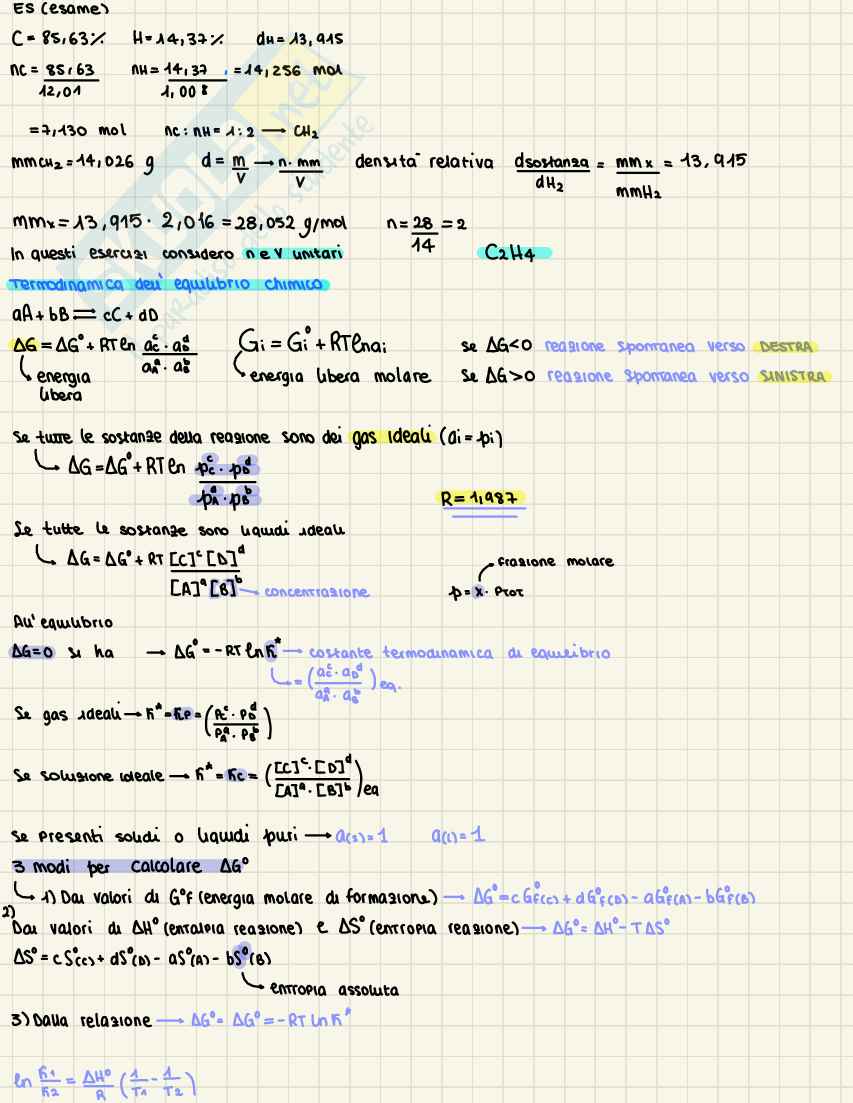 ES (esame)
C = 85,63% H = 14,37% dH = 13,915
nC = 85,63/12,01 nH = 14,37/1,008 = 14,256 mol
= 7,130 mol nC : nH = 1 : 2 → CH₂
mmCH₂ = 14,026 g d = m/V → n. mm/V densità relativa dsostanza/dH₂ = mmx/mmH₂ = 13,915
mmx = 13,915 · 2,016 = 28,052 g/mol n = 28/14 = 2
In questi esercizi considero n e V unitari C₂H₄
Termodinamica dell'equilibrio chimico
aA + bB ⇌ cC + dD
ΔG = ΔG° + RT ln aᶜC · aᵈD / aᵃA · aᵇB Gi = Gi° + RT ln ai se ΔG<0 reazione spontanea verso DESTRA
energia libera energia libera molare se ΔG>0 reazione spontanea verso SINISTRA
Se tutte le sostanze della reazione sono dei gas ideali (ai = pi)
→ ΔG = ΔG° + RT ln pᶜC · pᵈD / pᵃA · pᵇB
R = 1,987
Se tutte le sostanze sono liquidi ideali
→ ΔG = ΔG° + RT [C]ᶜ [D]ᵈ / [A]ᵃ [B]ᵇ → concentrazione
frazione molare
p = x · Ptot
All'equilibrio
ΔG = 0 si ha → ΔG° = -RT ln K* → costante termodinamica di equilibrio
= (aᶜC · aDᵈ / aᵃA · aᵇB) eq.
Se gas ideali → K* = Kp = (Pᶜc · PDᵈ / PAᵃ · PBᵇ)
Se soluzione ideale → K* = Kc = ([C]ᶜ · [D]ᵈ / [A]ᵃ · [B]ᵇ)eq
Se presenti solidi o liquidi puri → a(s) = 1 a(l) = 1
3 modi per calcolare ΔG°
→ 1) Dai valori di G°f (energia molare di formazione) → ΔG° = cG°f(C) + dG°f(D) - aG°f(A) - bG°f(B)
2) Dai valori di ΔH° (entalpia reazione) e ΔS° (entropia reazione) → ΔG° = ΔH° - TΔS°
ΔS° = cS°(C) + dS°(D) - aS°(A) - bS°(B)
entropia assoluta
3) Dalla relazione → ΔG° = ΔG° = -RT ln K*
ln K1/K2 = ΔH°/R (1/T1 - 1/T2)
SKUOLA.net
il paradiso dello studente